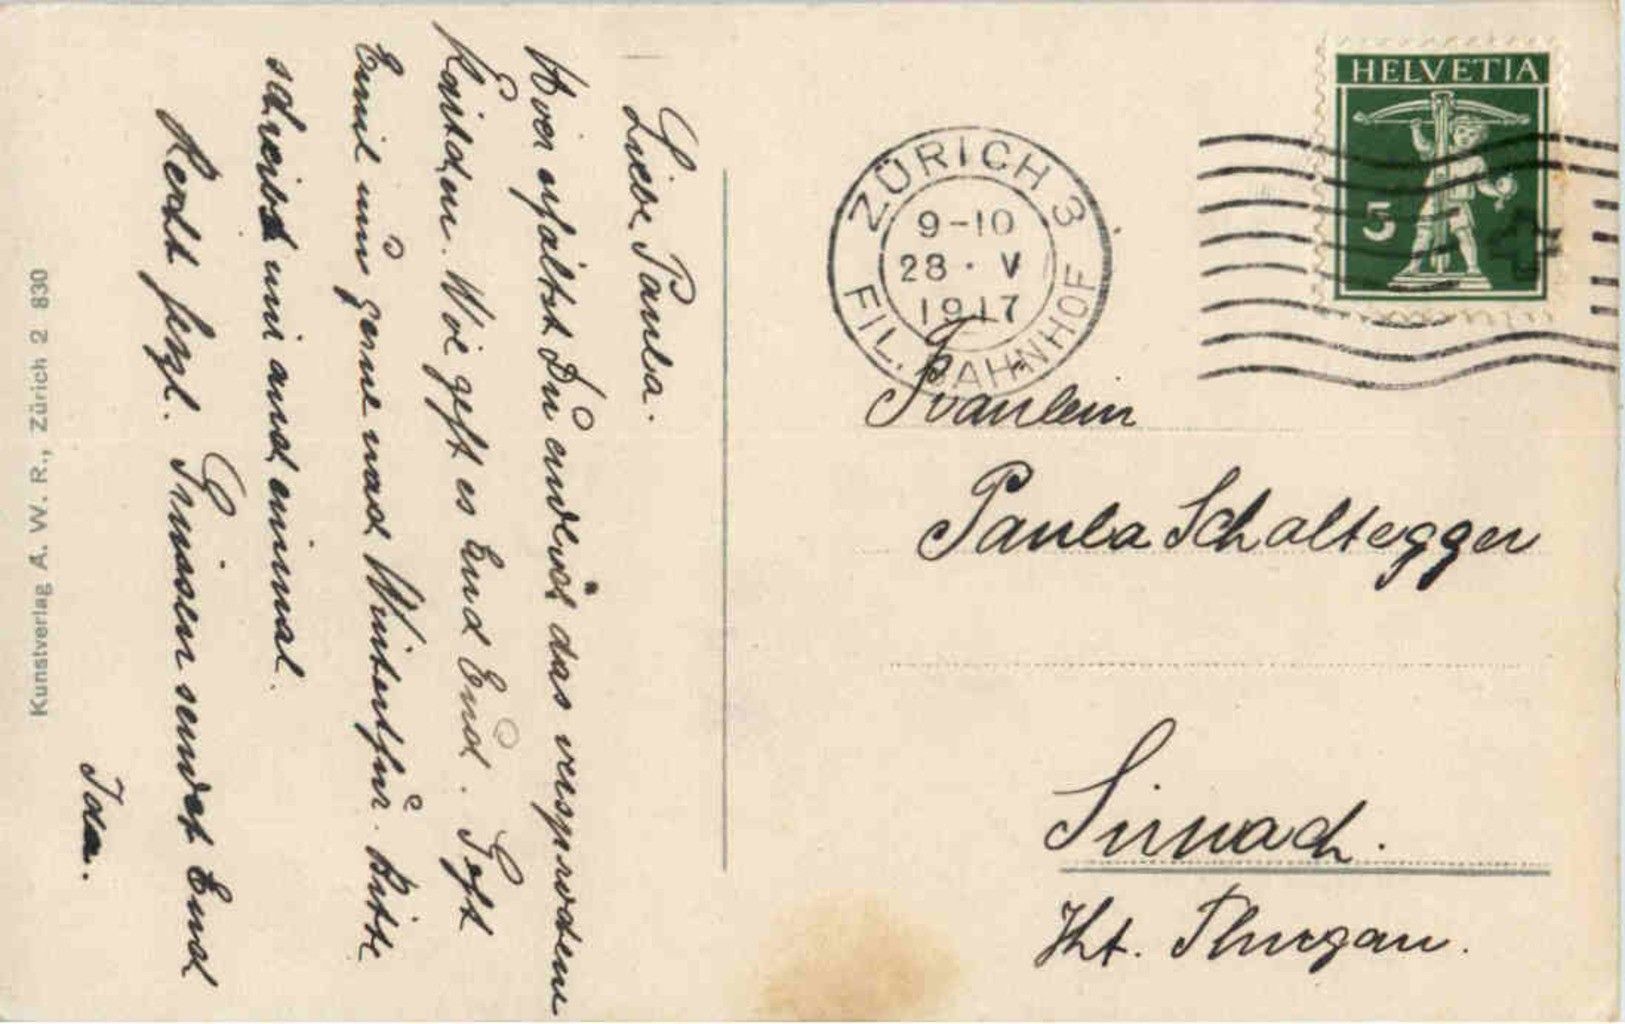 Liebe Paula.
Hier erhältst Du endlich das versprochene
Kärtchen. Wie geht es Euch
Emil
schreibt mir auch einmal.
Recht herzl. Grüssen sendet Euch
Ida.
Kunstverlag A. W. R., Zürich 2 830
HELVETIA
5
ZÜRICH 3
9-10
28 · V
1917
FIL. BAHNHOF
Fräulein
Paula Schaltegger
Sirnach.
Kt. Thurgau.